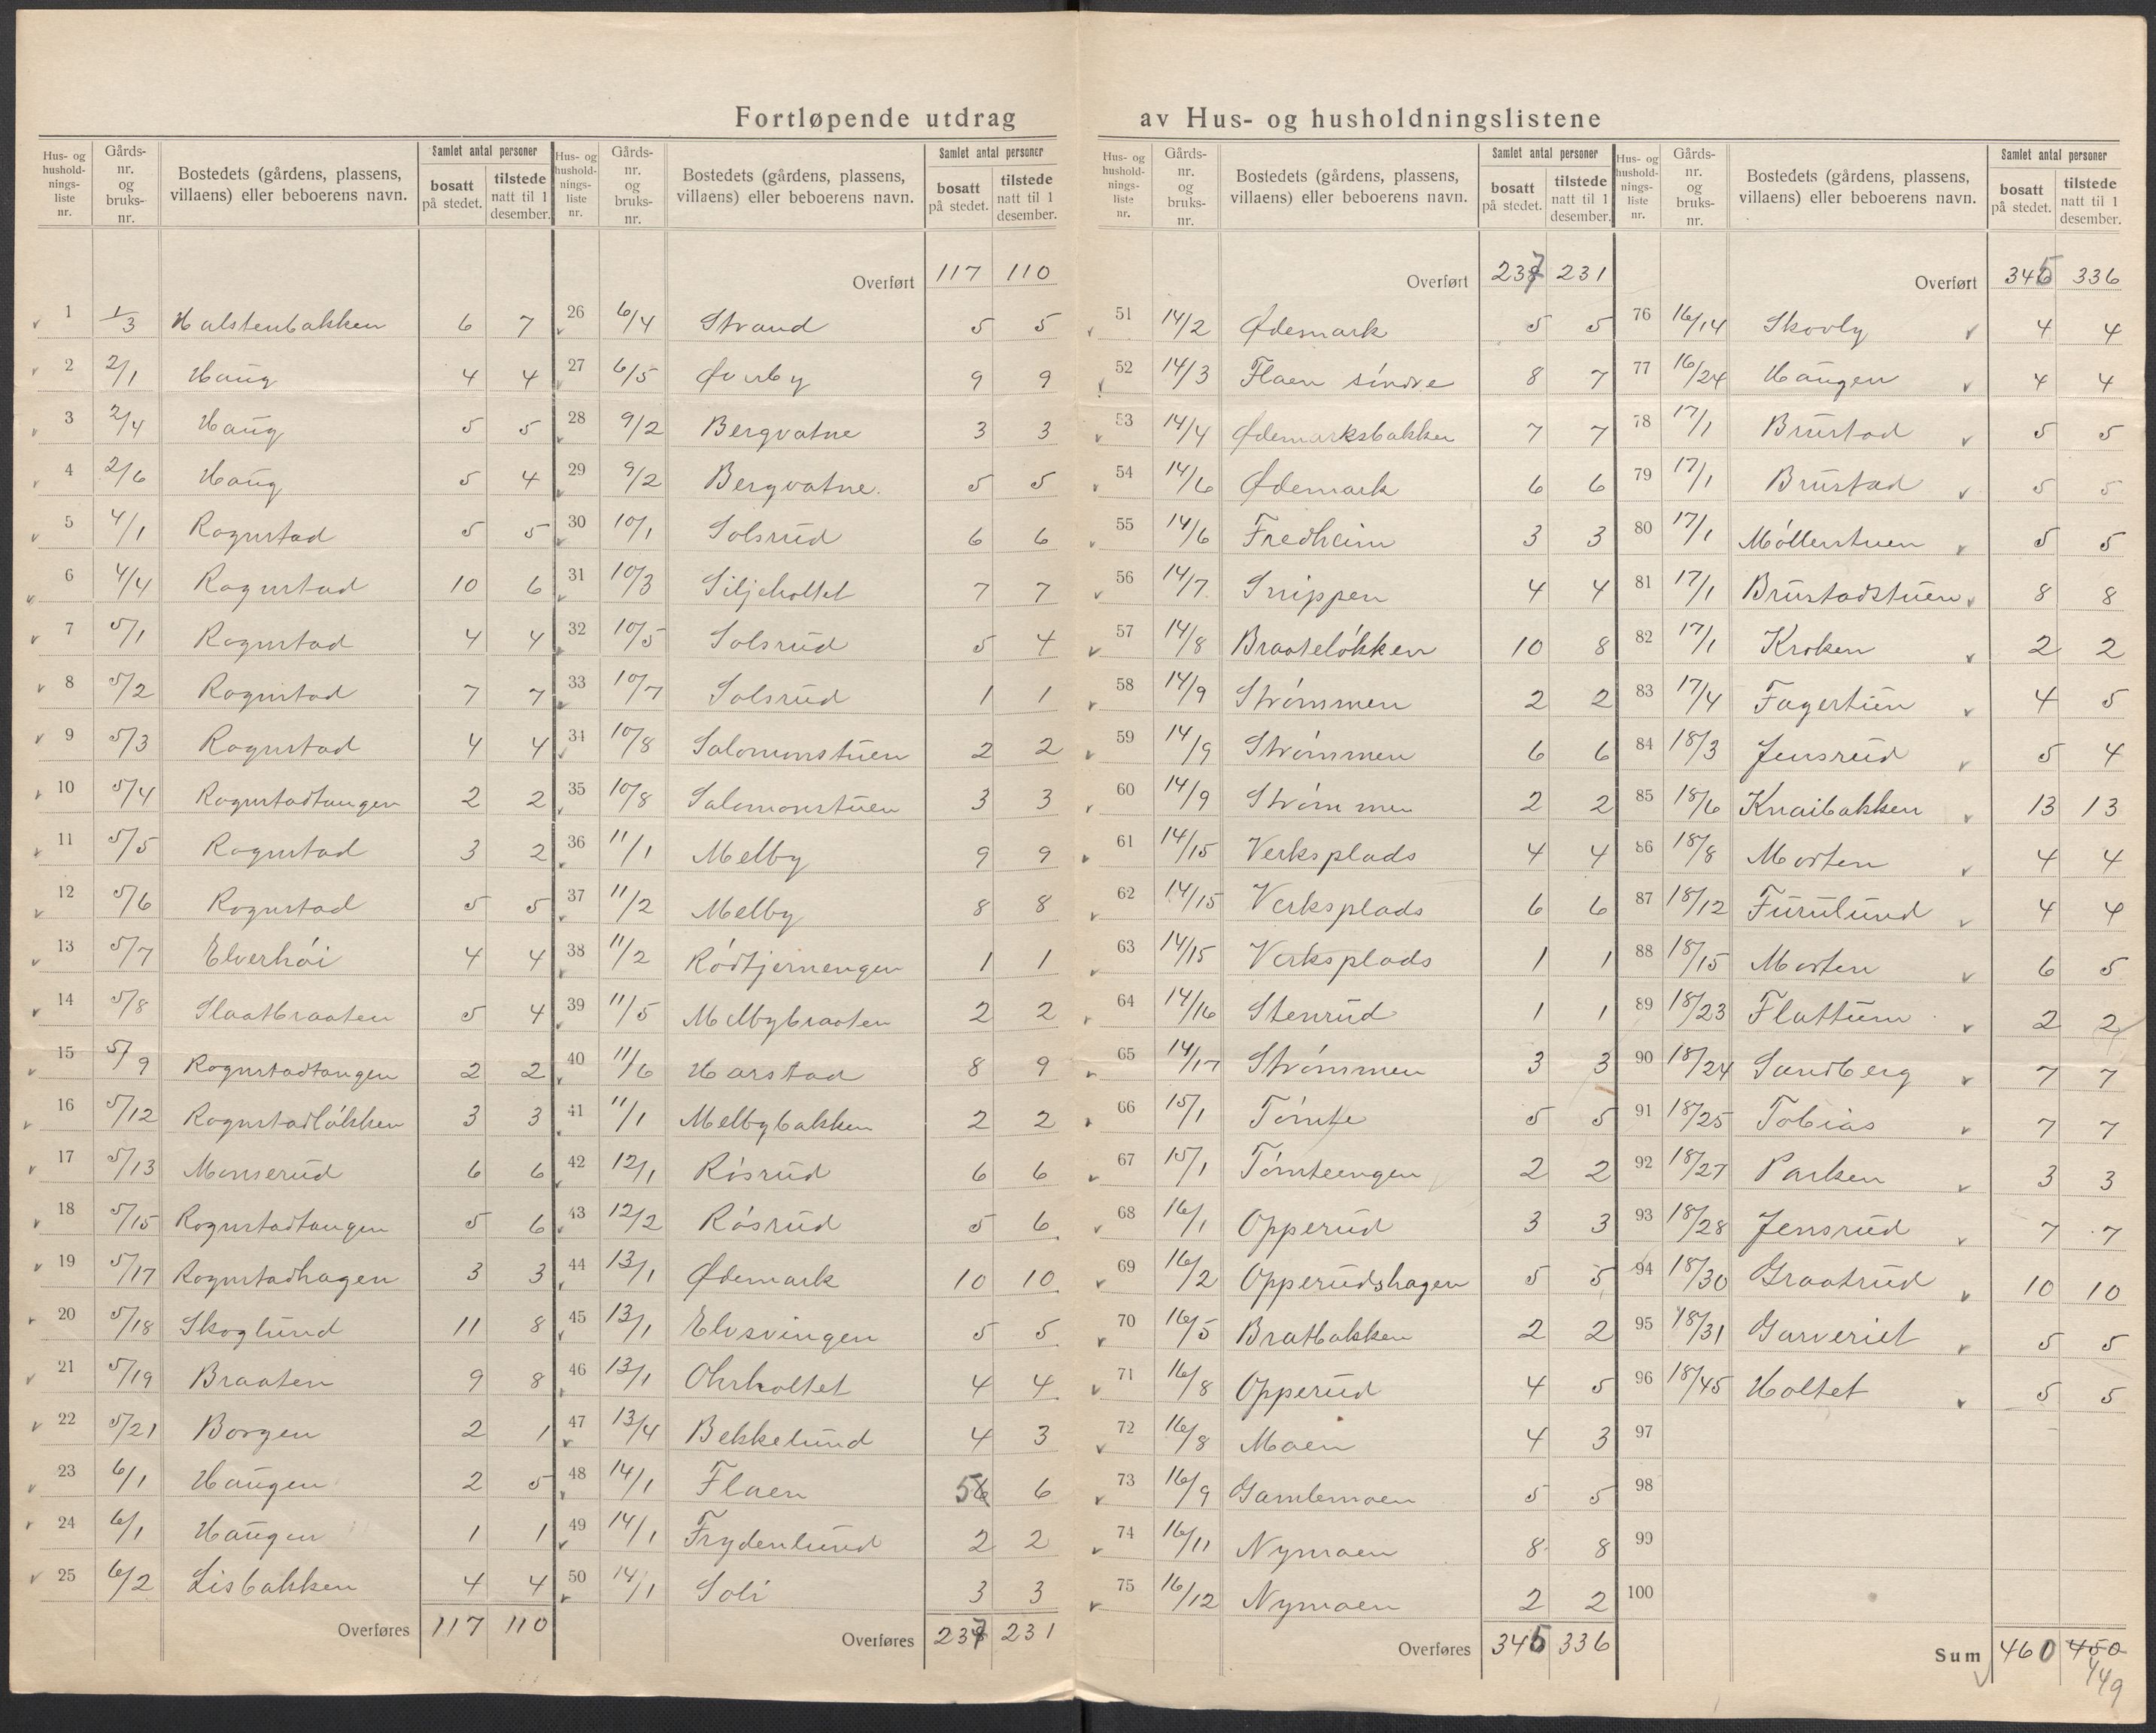 Fortløpende utdrag av Hus- og husholdningslistene
Hus- og husholdnings-liste nr. | Gårds-nr. og bruks-nr. | Bostedets (gårdens, plassens, villaens) eller beboerens navn. | Samlet antal personer | bosatt på stedet. | tilstede natt til 1 desember.
1 1/3 Halstenbakken 6 7
2 2/1 Haug 4 4
3 2/4 Haug 5 5
4 2/6 Haug 5 4
5 4/1 Rognstad 5 5
6 4/4 Rognstad 10 6
7 5/1 Rognstad 4 4
8 5/2 Rognstad 7 7
9 5/3 Rognstad 4 4
10 5/4 Rognstadtangen 2 2
11 5/5 Rognstad 3 2
12 5/6 Rognstad 5 5
13 5/7 Elverhöi 4 4
14 5/8 Slaatbraaten 5 4
15 5/9 Rognstadtangen 2 2
16 5/12 Rognstadlökken 3 3
17 5/13 Monserud 6 6
18 5/15 Rognstadtangen 5 6
19 5/17 Rognstadhagen 3 3
20 5/18 Skoglund 11 8
21 5/19 Braaten 9 8
22 5/21 Borgen 2 1
23 6/1 Haugen 2 5
24 6/1 Haugen 1 1
25 6/2 Lisbakken 4 4
Overføres 117 110
Hus- og husholdnings-liste nr. | Gårds-nr. og bruks-nr. | Bostedets (gårdens, plassens, villaens) eller beboerens navn. | Samlet antal personer | bosatt på stedet. | tilstede natt til 1 desember.
Overført 117 110
26 6/4 Strand 5 5
27 6/5 Øverby 9 9
28 9/2 Bergvatne 3 3
29 9/2 Bergvatne. 5 5
30 10/1 Solsrud 6 6
31 10/3 Siljeholtet 7 7
32 10/5 Solsrud 5 4
33 10/7 Solsrud 1 1
34 10/8 Salomonstuen 2 2
35 10/8 Salomonstuen 3 3
36 11/1 Melby 9 9
37 11/2 Melby 8 8
38 11/2 Rödtjernengen 1 1
39 11/5 Melbybraaten 2 2
40 11/6 Harstad 8 9
41 11/1 Melbybakken 2 2
42 12/1 Rösrud 6 6
43 12/2 Rösrud 5 6
44 13/1 Ødemark 10 10
45 13/1 Elvsvingen 5 5
46 13/1 Ohrholtet 4 4
47 13/4 Bekkelund 4 3
48 14/1 Flaen 5 6
49 14/1 Frydenlund 2 2
50 14/1 Soli 3 3
Overføres 237 231
Hus- og husholdnings-liste nr. | Gårds-nr. og bruks-nr. | Bostedets (gårdens, plassens, villaens) eller beboerens navn. | Samlet antal personer | bosatt på stedet. | tilstede natt til 1 desember.
Overført 237 231
51 14/2 Ødemark 5 5
52 14/3 Flaen sindre 8 7
53 14/4 Ødemarksbakken 7 7
54 14/6 Ødemark 6 6
55 14/6 Fredheim 3 3
56 14/7 Snippen 4 4
57 14/8 Braatelökken 10 8
58 14/9 Strömmen 2 2
59 14/9 Strömmen 6 6
60 14/9 Strömmen 2 2
61 14/15 Verksplads 4 4
62 14/15 Verksplads 6 6
63 14/15 Verksplads 1 1
64 14/16 Stenrud 1 1
65 14/17 Strömmen 3 3
66 15/1 Tömte 5 5
67 15/1 Tömteengen 2 2
68 16/1 Opperud 3 3
69 16/2 Opperudshagen 5 5
70 16/5 Bratbakken 2 2
71 16/8 Opperud 4 5
72 16/8 Moen 4 3
73 16/9 Gamlemoen 5 5
74 16/11 Nymoen 8 8
75 16/12 Nymoen 2 2
Overføres 345 336
Hus- og husholdnings-liste nr. | Gårds-nr. og bruks-nr. | Bostedets (gårdens, plassens, villaens) eller beboerens navn. | Samlet antal personer | bosatt på stedet. | tilstede natt til 1 desember.
Overført 345 336
76 16/14 Skovly 4 4
77 16/24 Haugen 4 4
78 17/1 Brustad 5 5
79 17/1 Brustad 5 5
80 17/1 Möllerstuen 5 5
81 17/1 Brustadstuen 8 8
82 17/1 Kroken 2 2
83 17/4 Fagertun 4 5
84 18/3 Jensrud 5 4
85 18/6 Knaibakken 13 13
86 18/8 Morten 4 4
87 18/12 Furulund 4 4
88 18/15 Morten 6 5
89 18/23 Flattum 2 2
90 18/24 Sandberg 7 7
91 18/25 Tobias 7 7
92 18/27 Parken 3 3
93 18/28 Jensrud 7 7
94 18/30 Graatrud 10 10
95 18/31 Garveriet 5 5
96 18/45 Holtet 5 5
97
98
99
100
Sum 460 450
449